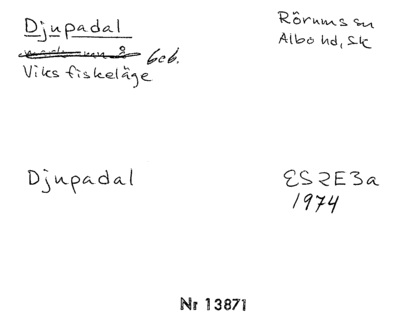 Djupadal
Rörums sn
Albo hd, Sk
beb.
Viks fiskeläge
Djupadal
ES2E3a
1974
Nr 13871